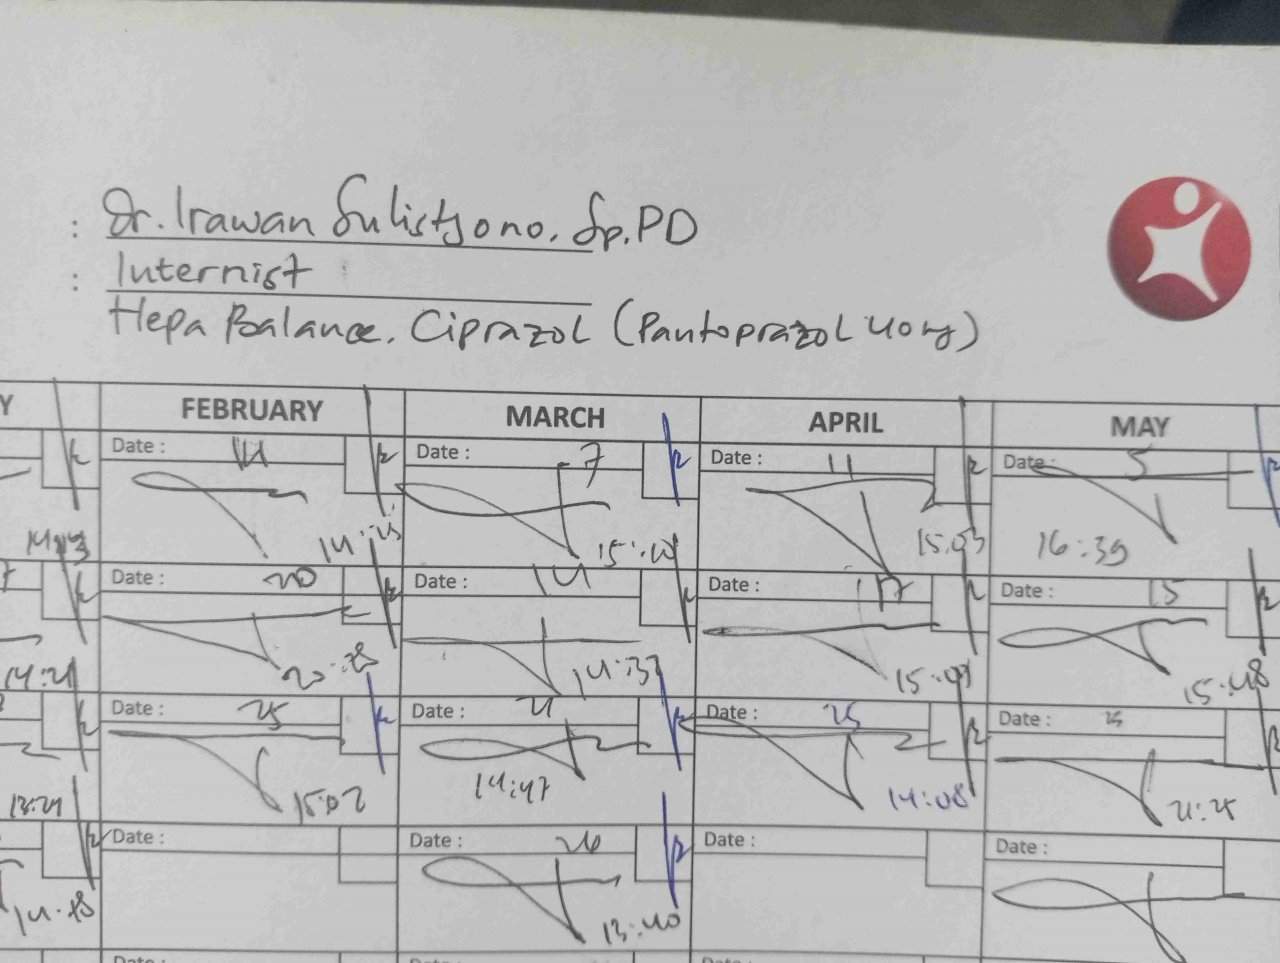 : Dr. Irawan Sulistyono, Sp.PD
: Internist
Hepa Balance, Ciprazol (Pantoprazol 40mg)
Y FEBRUARY MARCH APRIL MAY
Date : 14 Date : 7 Date : 11 Date : 5
15:03 16:39
Date : 20 Date : 14 Date : 17 Date : 15
14:21 14:37 15:48
Date : 25 Date : 21 Date : 25 Date : 25
15:02 14:47 14:08 21:25
Date : Date : 26 Date : Date :
13:40
Date : Date : Date :